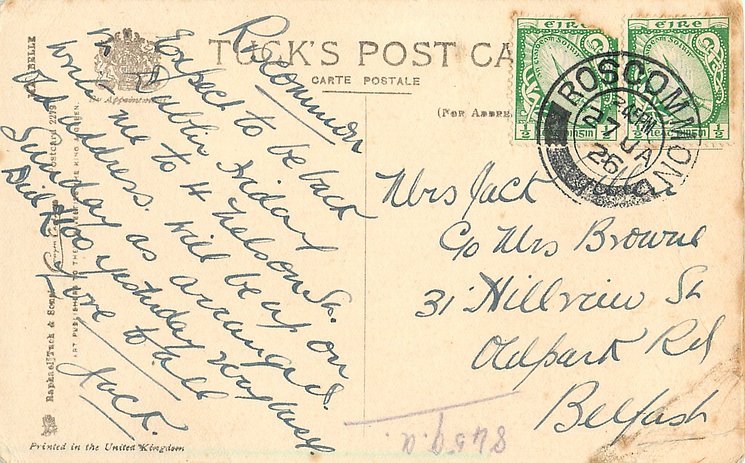 TUCK'S POST CA
CARTE POSTALE
(FOR ADDRE
By Appointment
Roscommon
Expect to be back
in Dublin Friday
write me to 4 Nelson St.
Old address. Will be up on
Sunday as arranged.
Did 100 yesterday
Love to all
Jack.
Mrs Jack
C/o Mrs Browne
31 Hillview St
Oldpark Rd
Belfast
EIRE
½
EIRE
½
ROSCOMMON
3 45 PM
7 JA
26
845 g.a.
Raphael Tuck & Sons
Postcard 2279
BELLE
ART PUBLISHERS TO THE KING & QUEEN.
Printed in the United Kingdom